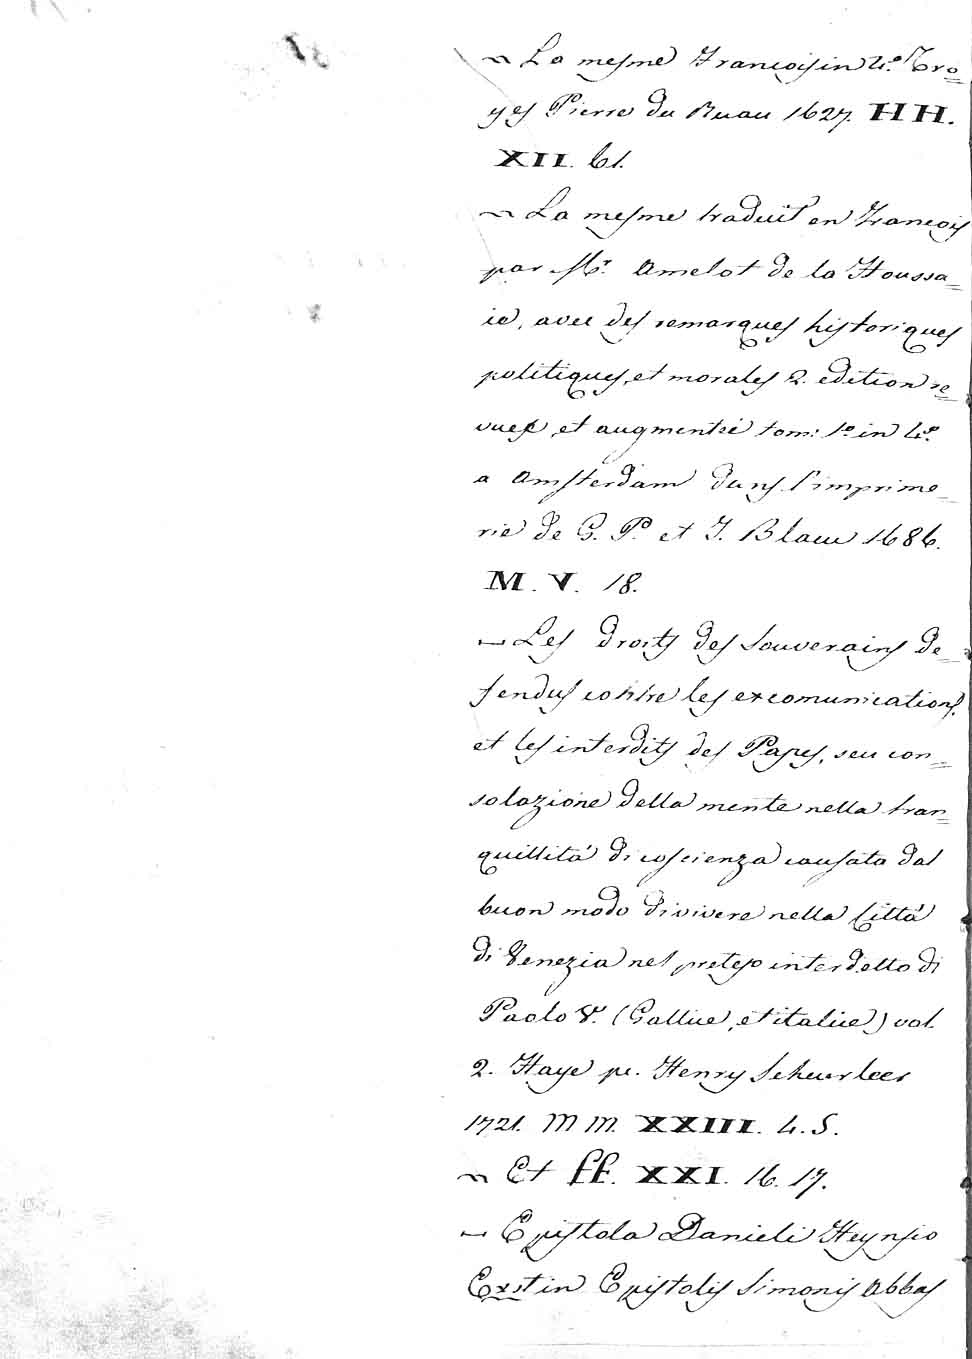 ~ La mesme Francois in 4.º Tro=
yes Pierre du Ruau 1627. HH.
XII. 61.
~ La mesme traduit en Francois
par Mr. Amelot de la Houssa=
ie, avec des remarques historiques
politiques, et morales 2. edition re=
vuee, et augmentée tom: 1.º in 4.º
a Amsterdam dans l'imprime=
rie de G. P. et J. Blaeu 1686.
M. V. 18.
~ Les droits des Souverains de=
fendus contre les excomunications,
et les interdits des Papes, seu con=
solazione della mente nella tran=
quillitá di coscienza causata dal
buon modo di vivere nella Cittá
di Venezia nel preteso interdetto di
Paolo V. (Gallice, et italice) vol.
2. Haye pr. Henry Scheurleer
1721. MM. XXIII. 4. 5.
~ Et ff. XXI. 16. 17.
~ Epistola Danieli Heynsio
Exst in Epistolis Simonis Abbas